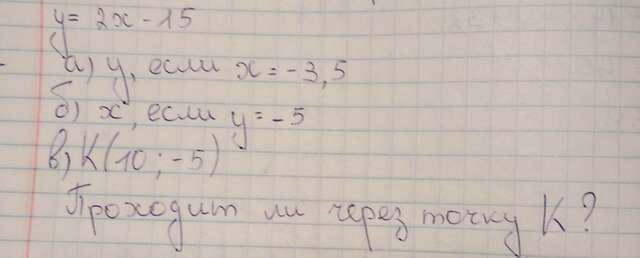 y = 2x - 15
а) y, если x = -3,5
б) x, если y = -5
в) K(10; -5)
Проходит ли через точку K?